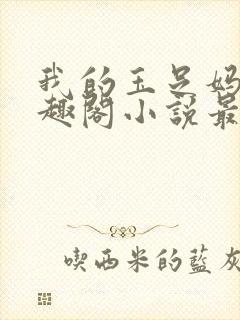 我的玉足妈
趣阁小说最
喫西米的藍灰